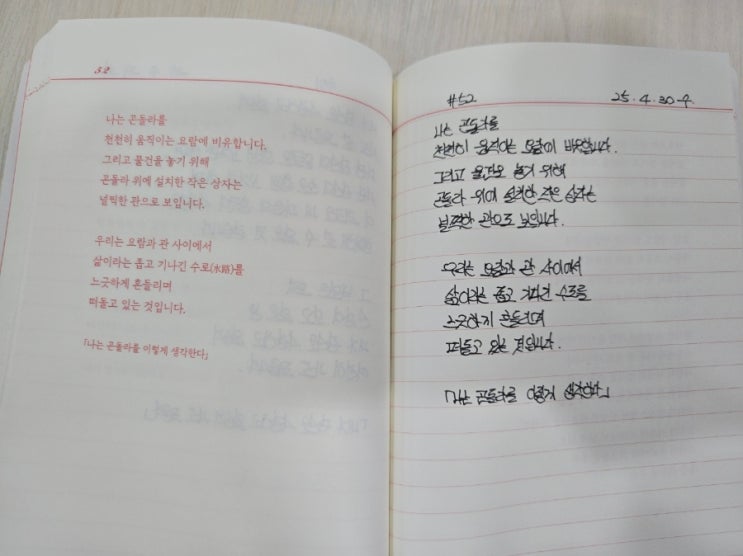 52
나는 곤돌라를
천천히 움직이는 요람에 비유합니다.
그리고 물건을 놓기 위해
곤돌라 위에 설치한 작은 상자는
널찍한 관으로 보입니다.
우리는 요람과 관 사이에서
삶이라는 좁고 기나긴 수로(水路)를
느긋하게 흔들리며
떠돌고 있는 것입니다.
「나는 곤돌라를 이렇게 생각한다」
#52 25. 4. 30. 수
나는 곤돌라를
천천히 움직이는 요람에 비유합니다.
그리고 물건을 놓기 위해
곤돌라 위에 설치한 작은 상자는
널찍한 관으로 보입니다.
우리는 요람과 관 사이에서
삶이라는 좁고 기나긴 수로를
느긋하게 흔들리며
떠돌고 있는 것입니다.
「나는 곤돌라를 이렇게 생각한다」